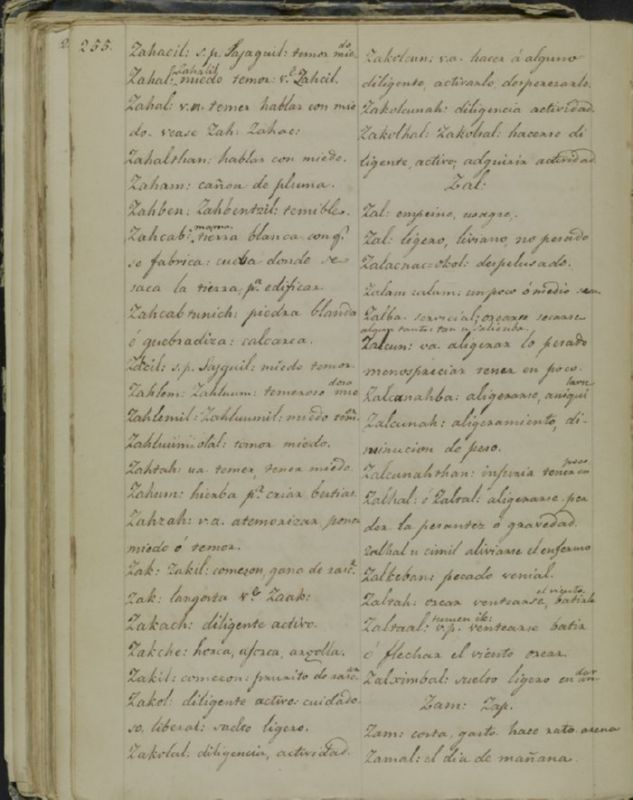 2. 255.
Zahacil: s.p. Sajaquil: temor mie do
Zahal: Zahalil miedo temor: v.e Zahcil.
Zahal: v.n. temer hablar con mie
do. vease Zah. Zahac:
Zahalthan: hablar con miedo.
Zaham: cañon de pluma.
Zahben: Zahbentzil: temible.
Zahcab: tierra blanca con q.e
se fabrica: cueba donde se
saca la tierra p.a edificar.
Zahcabtunich: piedra blanda
o quebradiza: calcarea.
Zdcil: s.p. Sajguil: miedo temor
Zahlem: Zahluum: temeroso mie doso
Zahlemil: Zahluumil: miedo tem.or
Zahluumolal: temor miedo.
Zahtah: va. temer, tener miedo.
Zahum: hierba p.a criar bestias.
Zahzah: v.a. atemorizar, poner
miedo ó temor.
Zak: Zakil: comezon, gana de rasc.r
Zak: langosta v.e Zaak:
Zakach: diligente activo.
Zakche: horca, argolla.
Zakil: comezon: prurito de rasc.ar
Zakol: diligente activo: cuidado
so. liberal: suelto ligero.
Zakolal: diligencia, actividad.
Zakolcun: v.a. hacer á alguno
diligente, activarlo, despenerarlo.
Zakolcunah: diligencia actividad.
Zakolhal: Zakoltal: hacerse di
ligente, activo, adquirir actividad
Zal:
Zal: empeine, usagre.
Zal: ligero, liviano, no pesado
Zalacnac=okol: despelusado.
Zalam zalam: un poco ó medio
Zalba servicial: orearse secarse
algun tanto:
Zalcun: va. aligerar lo pesado
menospreciar tener en poco.
Zalcunahba: aligerarse, aniqui larse
Zalcunah: aligeramiento, di-
minucion de peso.
Zalcunahthan: injuria tener en poco
Zalhal: ó Zaltal: aligerarse per
der la pesantez ó gravedad.
zalhal u cimil aliviarse el enfermo
Zalkeban: pecado venial.
Zaltah: orear ventearse, batirlo el viento
Zaltaal: tumen ik: v.p. ventearse batir
ó flechar el viento orear.
Zalximbal: suelto ligero en andar
Zam: Zap.
Zam: costa, gasto hace rato arena
Zamal: el dia de mañana.